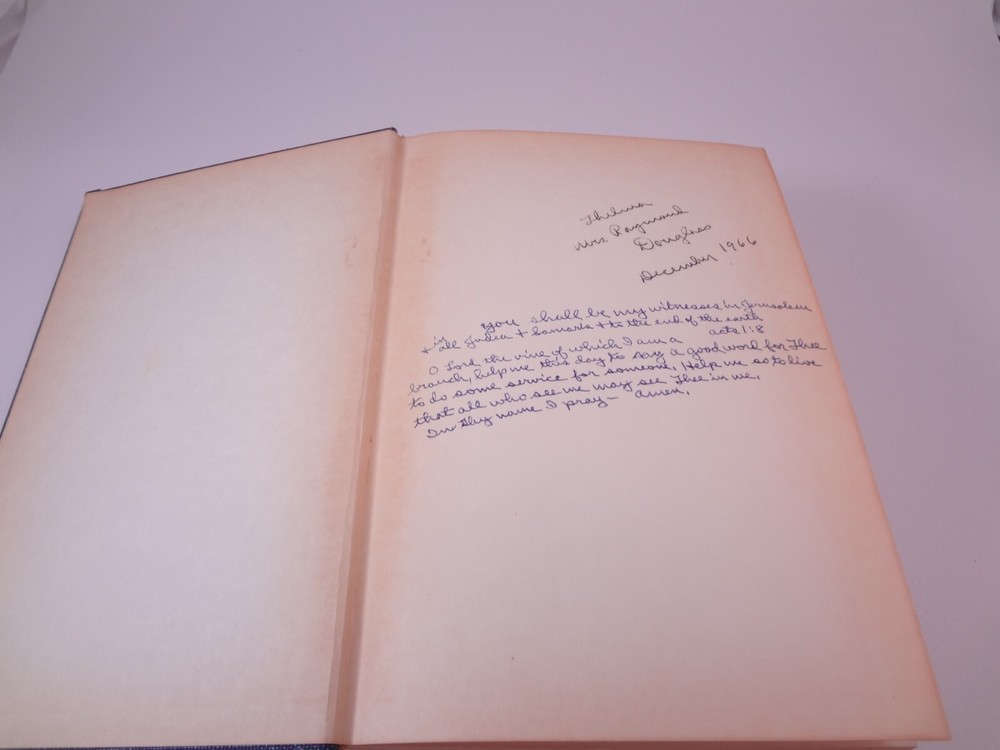 Thelma
Mrs. Raymond
Douglass
December 1966
you shall be my witnesses in Jerusalem
+ in all Judea + Samaria + to the end of the earth
acts 1:8
O Lord the vine of which I am a
branch, help me this day to say a good word for Thee
to do some service for someone. Help me so to live
that all who see me may see Thee in me.
In Thy name I pray — amen.